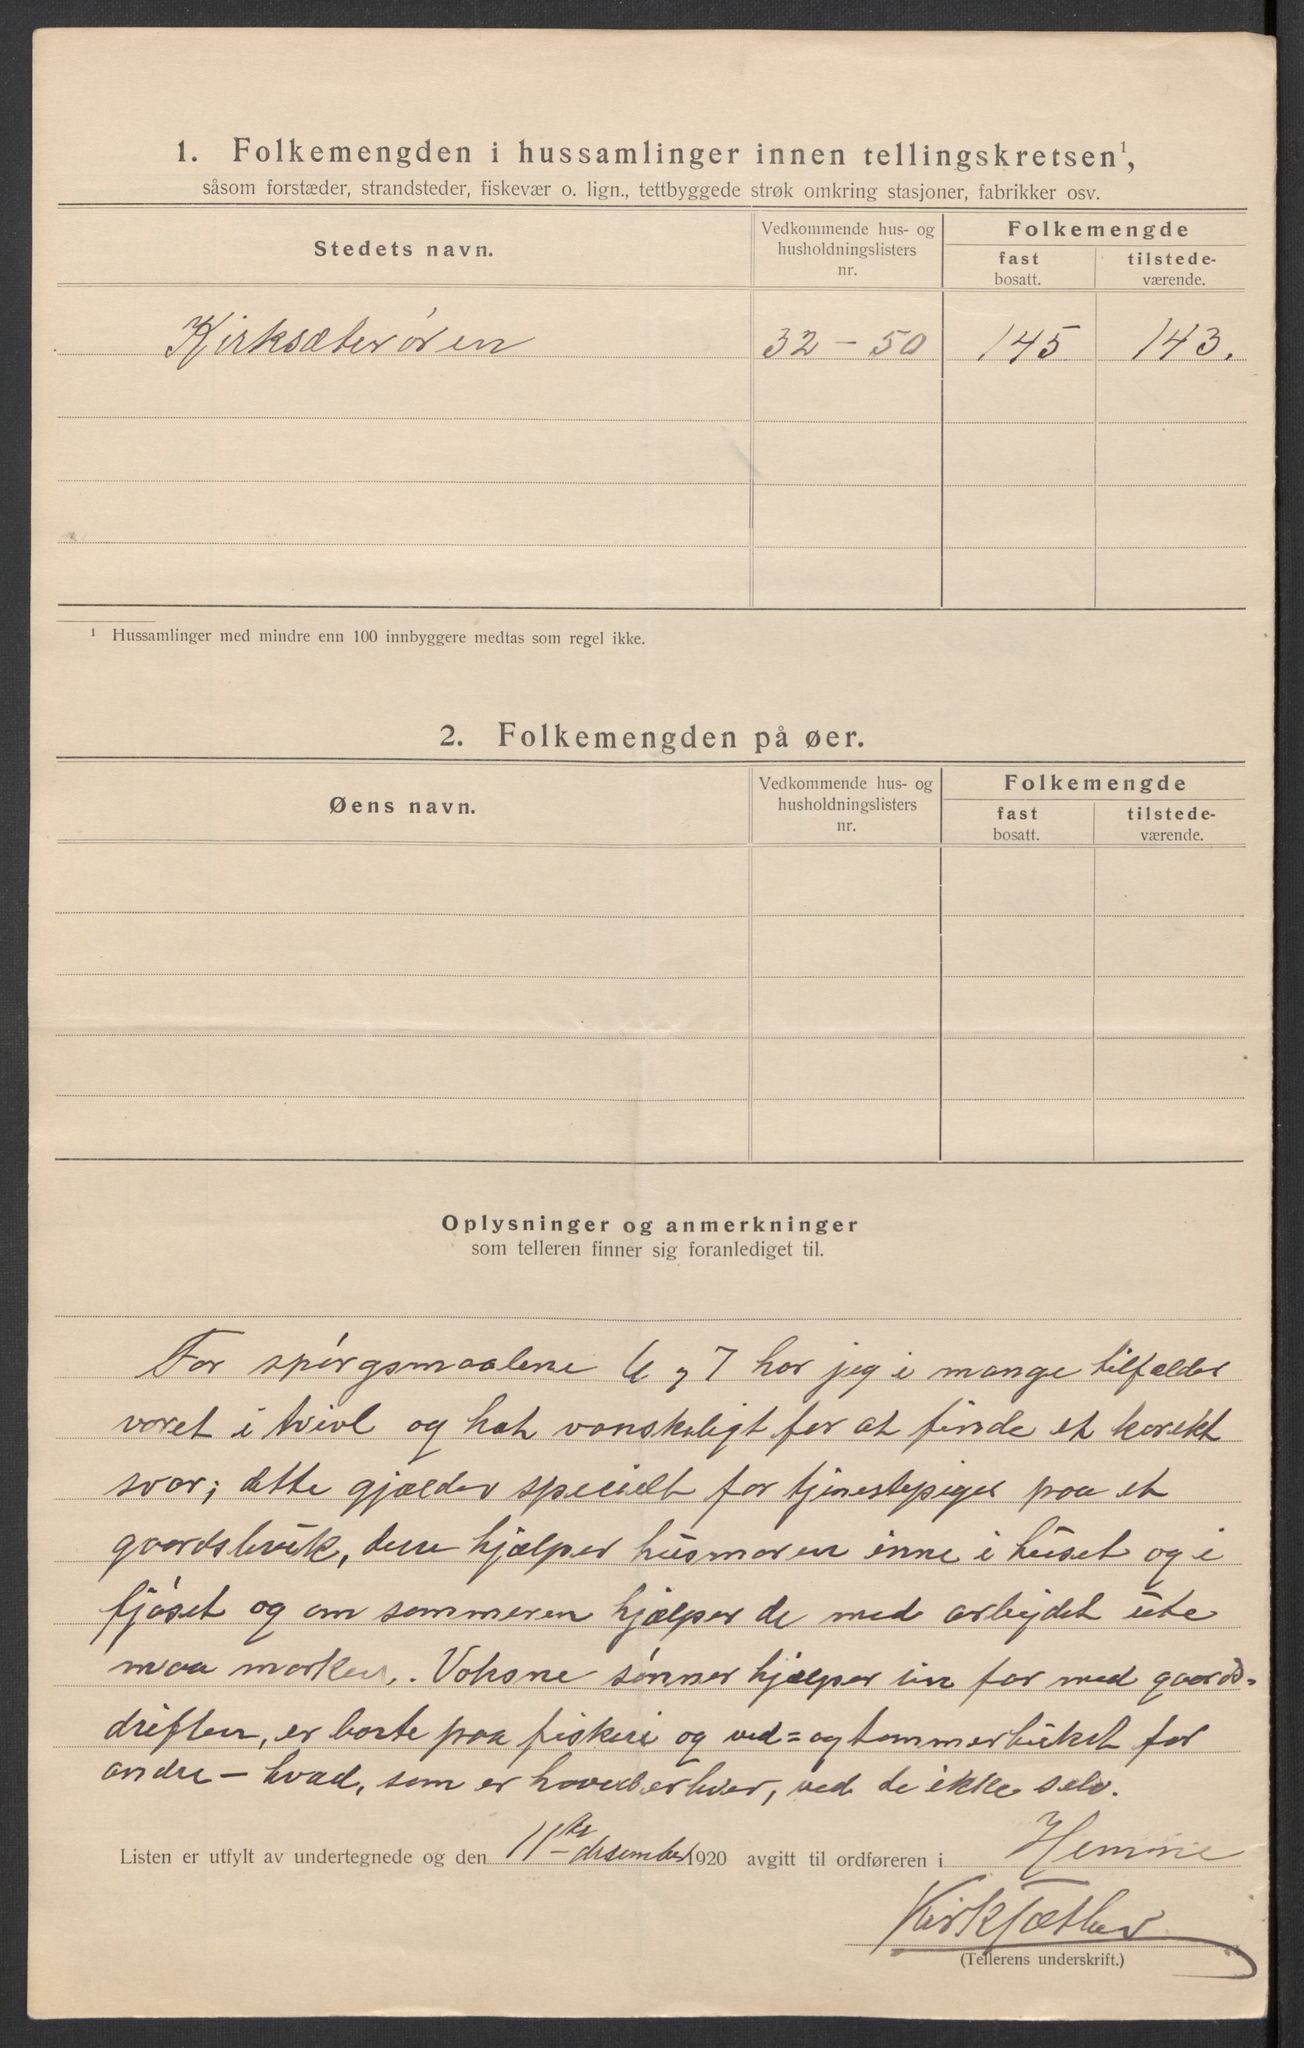 1. Folkemengden i hussamlinger innen tellingskretsen¹,
såsom forstæder, strandsteder, fiskevær o. lign., tettbyggede strøk omkring stasjoner, fabrikker osv.
Stedets navn.
Vedkommende hus- og husholdningslisters nr.
Folkemengde
fast bosatt.
tilstede- værende.
Kirksæterøren 32 – 50 145 143.
¹ Hussamlinger med mindre enn 100 innbyggere medtas som regel ikke.
2. Folkemengden på øer.
Øens navn.
Vedkommende hus- og husholdningslisters nr.
Folkemengde
fast bosatt.
tilstede- værende.
Oplysninger og anmerkninger
som telleren finner sig foranlediget til.
For spørgsmaalene 6 og 7 har jeg i mange tilfælder
været i tvivl og hat vanskeligt for at finde et korekt
svar; dette gjælder specielt for tjenestepiger paa et
gaardsbruk, dere hjælper husmoren inne i huset og i
fjøset og om sommeren hjælper de med arbejdet ute
maa marken. Voksne sønner hjælper sin far med gaards-
driften, er borte paa fiskeri og ved= og tømmerbruket for
andre – hvad, som er hovederhver, ved de ikke selv.
Listen er utfylt av undertegnede og den 11te desember 1920 avgitt til ordføreren i Hemne
Kirksæther
(Tellerens underskrift.)